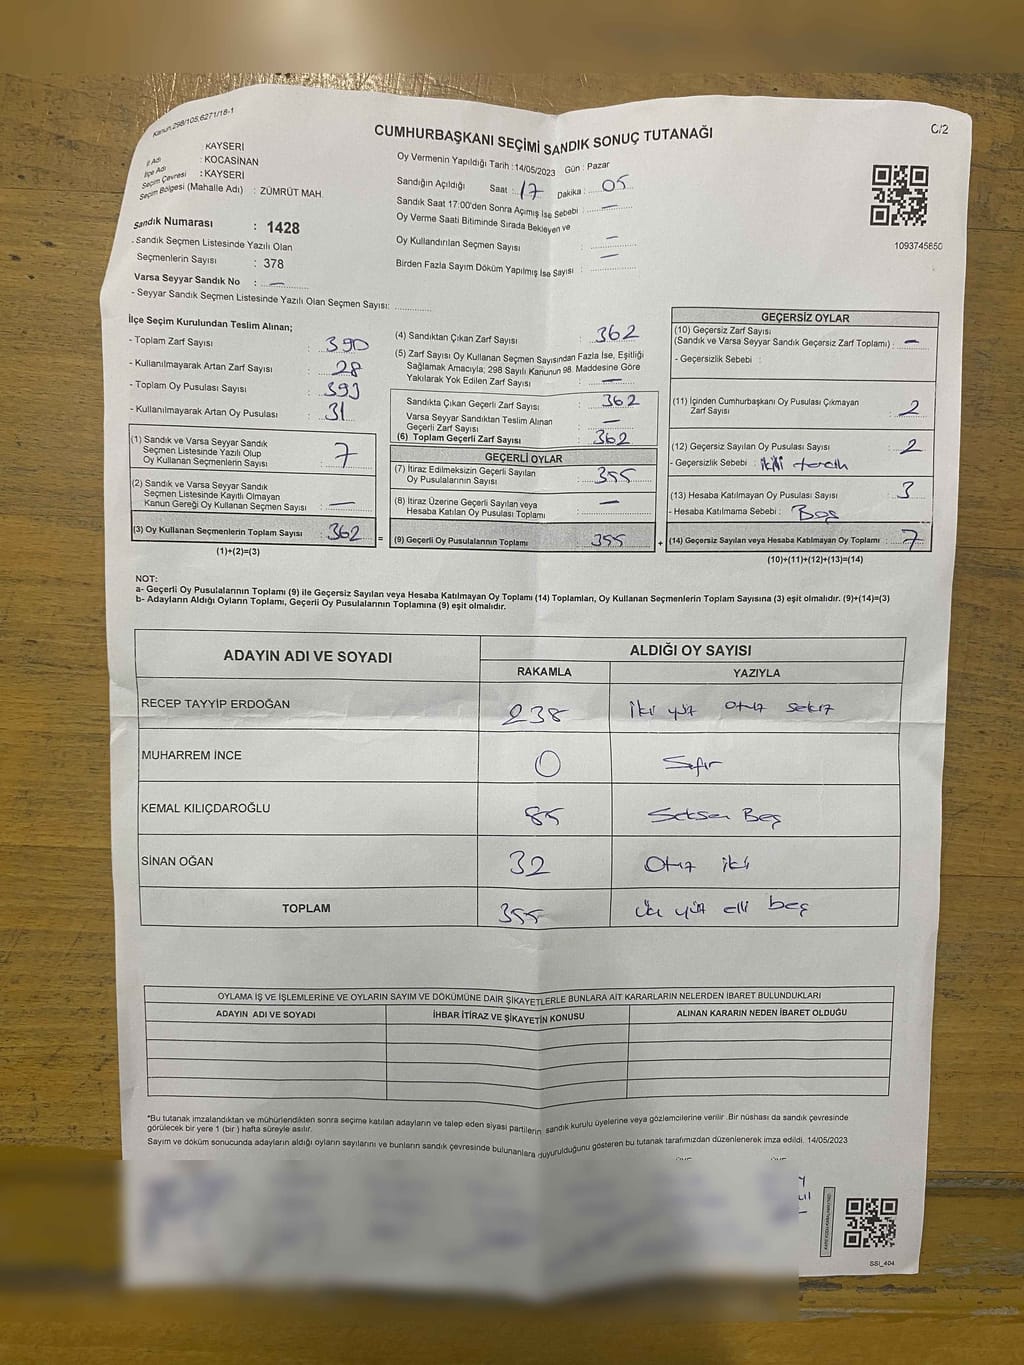 Kanun:298/105,6271/18-1
C/2
CUMHURBAŞKANI SEÇİMİ SANDIK SONUÇ TUTANAĞI
İl Adı : KAYSERİ
İlçe Adı : KOCASİNAN
Seçim Çevresi : KAYSERİ
Seçim Bölgesi (Mahalle Adı) : ZÜMRÜT MAH.
Sandık Numarası : 1428
- Sandık Seçmen Listesinde Yazılı Olan
Seçmenlerin Sayısı : 378
Varsa Seyyar Sandık No : —
- Seyyar Sandık Seçmen Listesinde Yazılı Olan Seçmen Sayısı: ............
Oy Vermenin Yapıldığı Tarih : 14/05/2023 Gün : Pazar
Sandığın Açıldığı Saat : 17 Dakika : 05
Sandık Saat 17:00'den Sonra Açımış İse Sebebi : —
Oy Verme Saati Bitiminde Sırada Bekleyen ve
Oy Kullandırılan Seçmen Sayısı : —
Birden Fazla Sayım Döküm Yapılmış İse Sayısı : —
1093745650
İlçe Seçim Kurulundan Teslim Alınan;
- Toplam Zarf Sayısı : 390
- Kullanılmayarak Artan Zarf Sayısı : 28
- Toplam Oy Pusulası Sayısı : 393
- Kullanılmayarak Artan Oy Pusulası : 31
(1) Sandık ve Varsa Seyyar Sandık
Seçmen Listesinde Yazılı Olup
Oy Kullanan Seçmenlerin Sayısı : 7
(2) Sandık ve Varsa Seyyar Sandık
Seçmen Listesinde Kayıtlı Olmayan
Kanun Gereği Oy Kullanan Seçmen Sayısı : —
(3) Oy Kullanan Seçmenlerin Toplam Sayısı : 362
(1)+(2)=(3)
(4) Sandıktan Çıkan Zarf Sayısı : 362
(5) Zarf Sayısı Oy Kullanan Seçmen Sayısından Fazla İse, Eşitliği
Sağlamak Amacıyla; 298 Sayılı Kanunun 98. Maddesine Göre
Yakılarak Yok Edilen Zarf Sayısı : —
Sandıkta Çıkan Geçerli Zarf Sayısı : 362
Varsa Seyyar Sandıktan Teslim Alınan
Geçerli Zarf Sayısı : —
(6) Toplam Geçerli Zarf Sayısı : 362
GEÇERLİ OYLAR
(7) İtiraz Edilmeksizin Geçerli Sayılan
Oy Pusulalarının Sayısı : 355
(8) İtiraz Üzerine Geçerli Sayılan veya
Hesaba Katılan Oy Pusulası Toplamı : —
= (9) Geçerli Oy Pusulalarının Toplamı : 355
GEÇERSİZ OYLAR
(10) Geçersiz Zarf Sayısı
(Sandık ve Varsa Seyyar Sandık Geçersiz Zarf Toplamı) : —
- Geçersizlik Sebebi :
(11) İçinden Cumhurbaşkanı Oy Pusulası Çıkmayan
Zarf Sayısı : 2
(12) Geçersiz Sayılan Oy Pusulası Sayısı : 2
- Geçersizlik Sebebi : ikili tercih
(13) Hesaba Katılmayan Oy Pusulası Sayısı : 3
- Hesaba Katılmama Sebebi : Boş
+ (14) Geçersiz Sayılan veya Hesaba Katılmayan Oy Toplamı : 7
(10)+(11)+(12)+(13)=(14)
NOT:
a- Geçerli Oy Pusulalarının Toplamı (9) ile Geçersiz Sayılan veya Hesaba Katılmayan Oy Toplamı (14) Toplamları, Oy Kullanan Seçmenlerin Toplam Sayısına (3) eşit olmalıdır. (9)+(14)=(3)
b- Adayların Aldığı Oyların Toplamı, Geçerli Oy Pusulalarının Toplamına (9) eşit olmalıdır.
ADAYIN ADI VE SOYADI ALDIĞI OY SAYISI
RAKAMLA YAZIYLA
RECEP TAYYİP ERDOĞAN 238 iki yüz otuz sekiz
MUHARREM İNCE 0 Sıfır
KEMAL KILIÇDAROĞLU 85 Seksen Beş
SİNAN OĞAN 32 Otuz iki
TOPLAM 355 üç yüz elli beş
OYLAMA İŞ VE İŞLEMLERİNE VE OYLARIN SAYIM VE DÖKÜMÜNE DAİR ŞİKAYETLERLE BUNLARA AİT KARARLARIN NELERDEN İBARET BULUNDUKLARI
ADAYIN ADI VE SOYADI İHBAR İTİRAZ VE ŞİKAYETİN KONUSU ALINAN KARARIN NEDEN İBARET OLDUĞU
*Bu tutanak imzalandıktan ve mühürlendikten sonra seçime katılan adayların ve talep eden siyasi partilerin sandık kurulu üyelerine veya gözlemcilerine verilir .Bir nüshası da sandık çevresinde
görülecek bir yere 1 (bir ) hafta süreyle asılır.
Sayım ve döküm sonucunda adayların aldığı oyların sayılarını ve bunların sandık çevresinde bulunanlara duyurulduğunu gösteren bu tutanak tarafımızdan düzenlenerek imza edildi. 14/05/2023
SSI_404